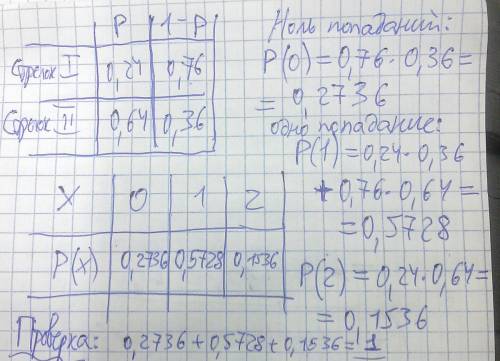 P 1-P
Стрелок I 0,24 0,76
Стрелок II 0,64 0,36
Ноль попаданий:
P(0)=0,76·0,36=
=0,2736
одно попадание:
P(1)=0,24·0,36
+0,76·0,64=
=0,5728
P(2)=0,24·0,64=
=0,1536
X 0 1 2
P(X) 0,2736 0,5728 0,1536
Проверка: 0,2736+0,5728+0,1536=1